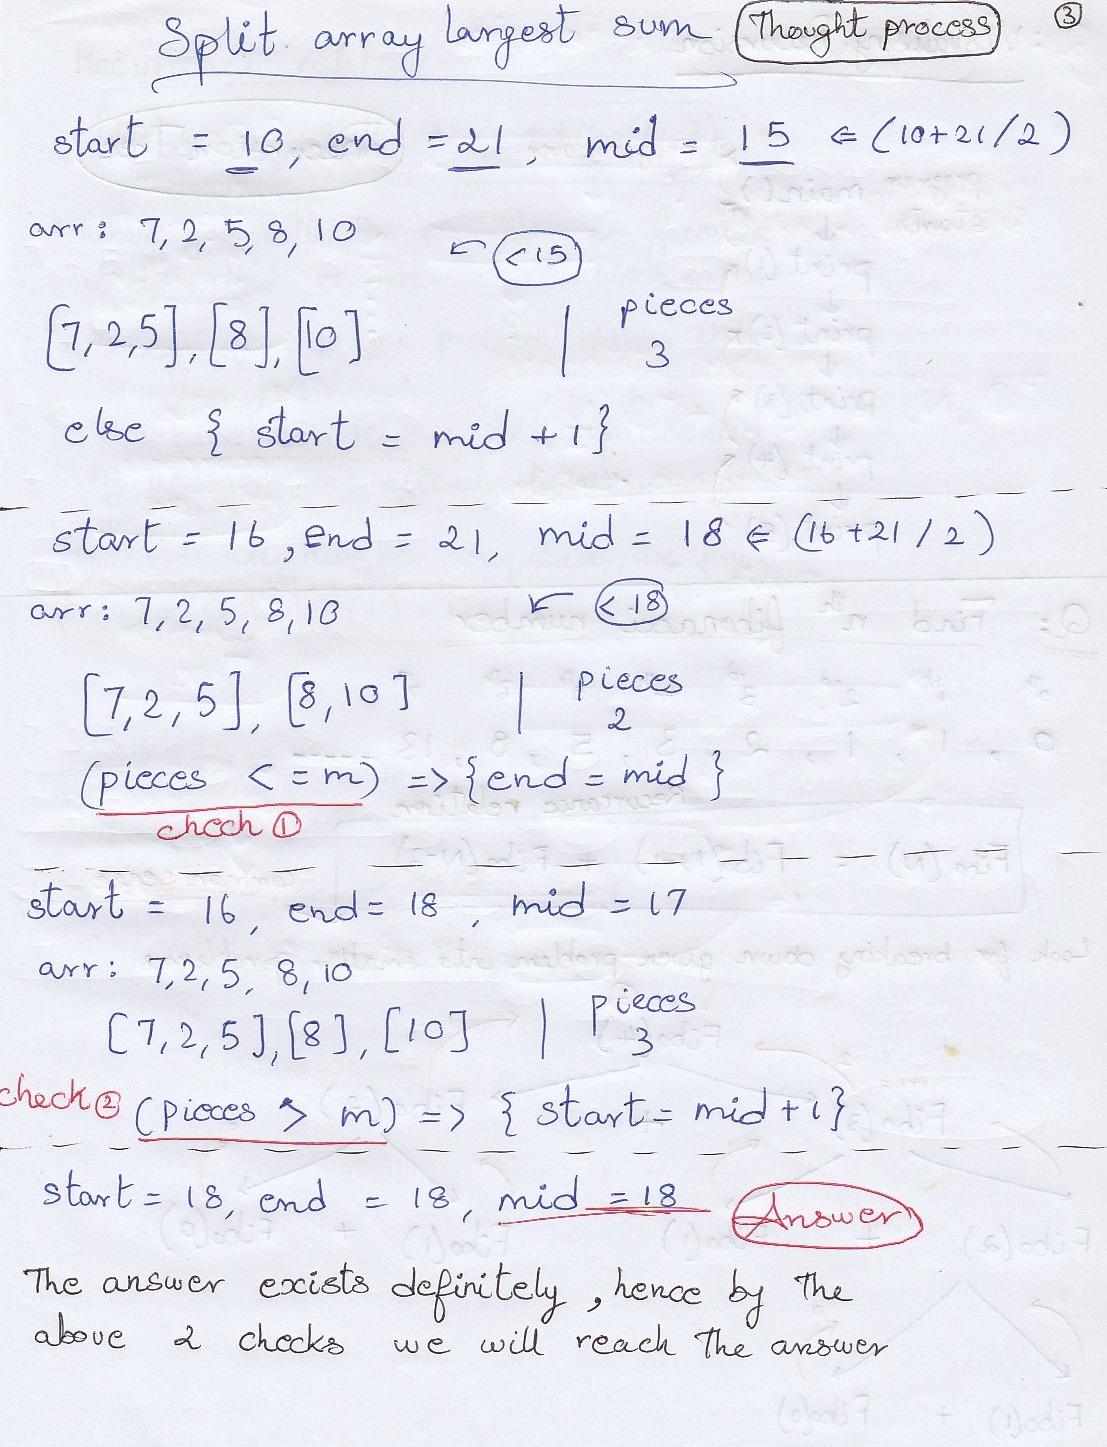 Split array largest sum (Thought process) ③
start = 10, end = 21, mid = 15 ⇐ (10+21/2)
arr: 7, 2, 5, 8, 10 ← <15
[7, 2, 5], [8], [10] | pieces
3
else { start = mid + 1 }
start = 16, End = 21, mid = 18 ⇐ (16+21/2)
arr: 7, 2, 5, 8, 10 ← <18
[7, 2, 5], [8, 10] | pieces
2
(pieces <= m) => { end = mid }
check ①
start = 16, end = 18, mid = 17
arr: 7, 2, 5, 8, 10
[7, 2, 5], [8], [10] | pieces
3
check ② (pieces > m) => { start = mid + 1 }
start = 18, end = 18, mid = 18 Answer
The answer exists definitely, hence by the
above 2 checks we will reach the answer